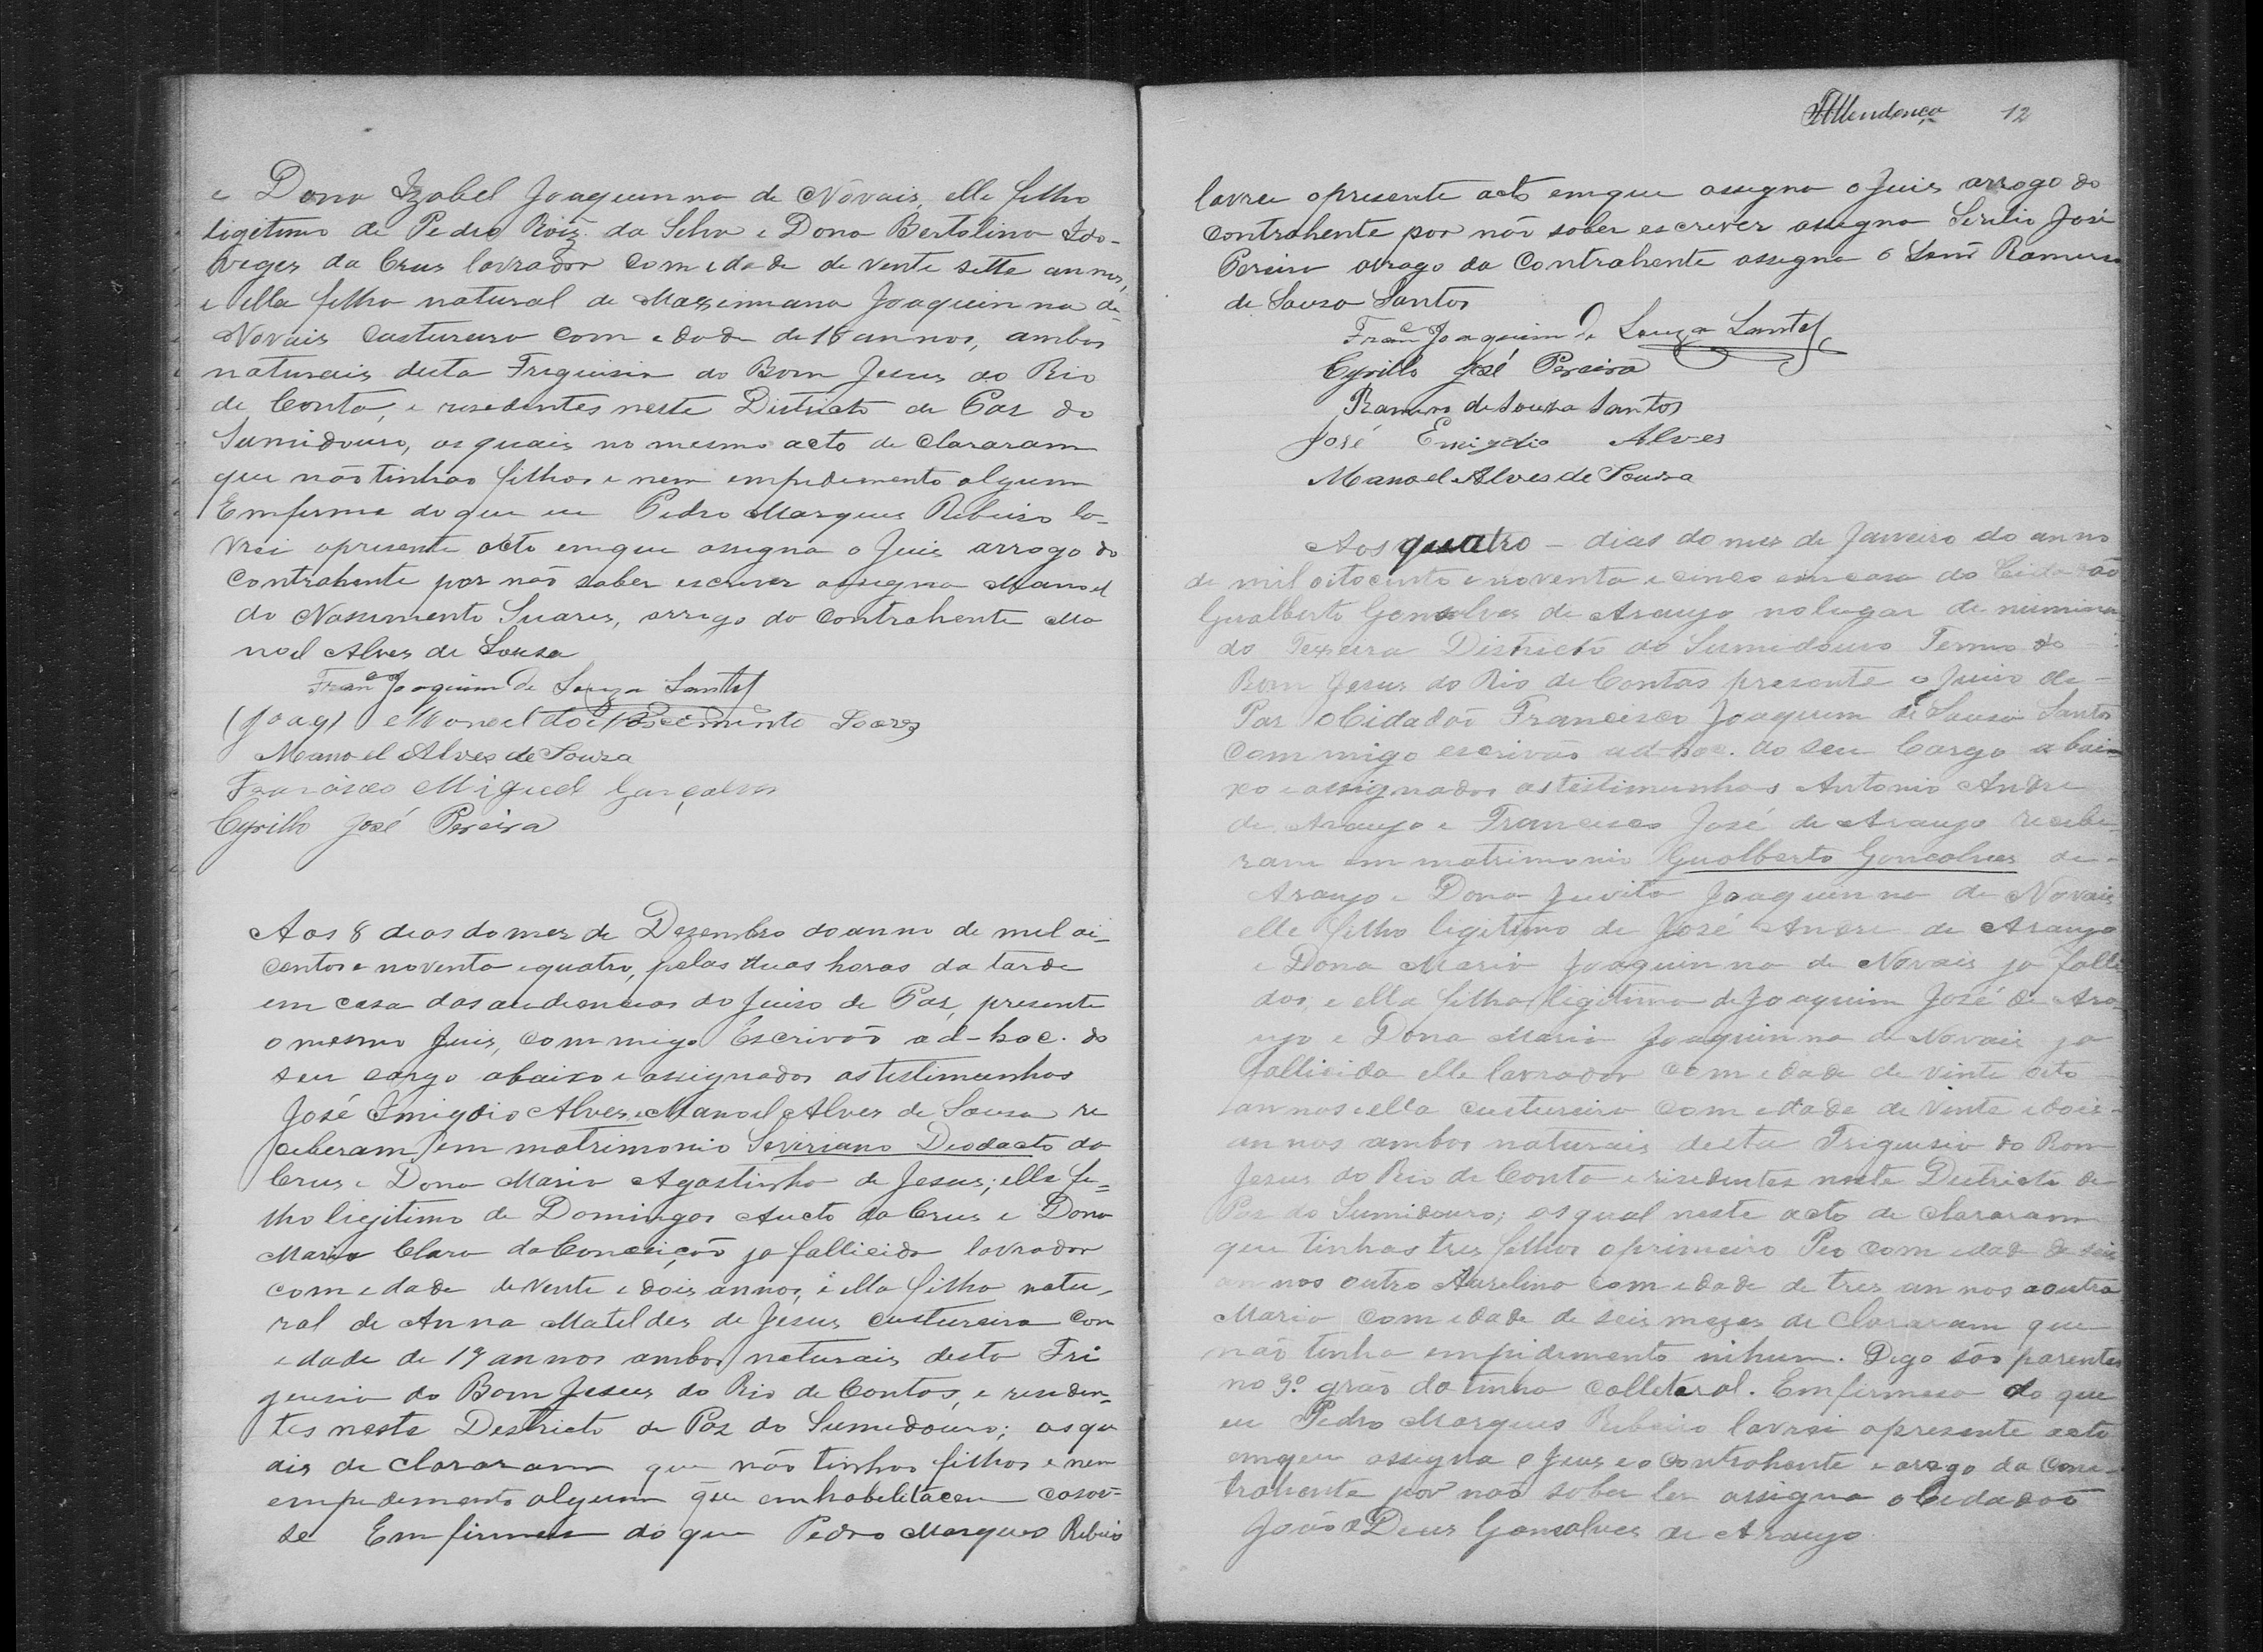 e Dona Izabel Joaquinna de Novais, elle filho
ligitimo de Pedro Roiz da Silva e Dona Bertolina Edo-
viges da Crus lavrador com idade de vente sette annos,
e ella filha natural de Maximiana Joaquinna de
Novais custureira com edade de 18 annos, ambos
naturais desta Freguisia do Bom Jesus do Rio
de Conta, e resedentes neste Districto de Paz do
Sumidouro, os quais no mesmo acto de clararam
que não tinhão filhos e nem empedemento algum
Emfirme do que eu Pedro Marques Ribeiro la-
vrei apresente acto emque assigna o Juis arrogo do
contrahente por não saber escrever assigna Manoel
do Nassimento Suares, arrogo do contrahente Ma
noel Alves de Sousa
Franco Joaquim de Souza Santos
(Joaq) Manoel do Nascemento Soares
Manoel Alves de Souza
Francisco Miguel Gonçalves
Cyrillo José Pereira
Aos 8 dias do mez de Dezembro do anno de mil oi-
centos e noventa e quatro, pelas duas horas da tarde
em casa das audiencias do Juiso de Paz, presente
o mesmo Juis, commigo Escrivão ad-hoc. do
seu cargo abaixo e assignados as testimunhas
José Emigdio Alves e Manoel Alves de Sousa re
ceberam em matrimonio Seviriano Deodacto da
Crus e Dona Maria Agostinha de Jesus; elle fi=
lho ligitimo de Domingos Aucto da Crus e Dona
Maria Clara da Conceição ja fallicida lavrador
com edade de vente e dois annos, e ella filha natu-
ral de Anna Mateldes de Jesus custureira com
edade de 19 annos ambos naturais desta Fri
gusia do Bom Jesus do Rio de Contas, e residen-
tes neste Destricto de Paz do Sumedouro; os qu
ais de clararam que não tinhão filhos e nem
empedemento algum que emhabelitácem casar=
se Emfirmesa do que Pedro Marques Ribeiro
FMendonça 12
lavrei opresente acto emque assigna o Juis arrogo do
Contrahente por não saber escrever assigna Sirilio José
Pereira arrogo da Contrahente assigna o Ramiro
de Sousa Santos
Franco Joaquim de Souza Santos
Cyrillo José Pereira
Ramiro de Souza Santos
José Emigdio Alves
Manoel Alves de Souza
Aos quatro - dias do mes de Janeiro do anno
de mil oitocento e noventa e cinco em casa do Cidadão
Gualberto Gonsalves de Araujo no lugar de
do Texeira Districto do Sumidouro Termo do
Bom Jesus do Rio de Contas presente o Juiz de
Paz o Cidadão Francisco Joaquim de Sousa Santos
Commigo escrivão ad-hoc. do seu Cargo abai=
xo e assignados as testimunhas Antonio Andre
de Araujo e Francisco José de Araujo recibe-
ram em matrimonio Gualberto Goncalves de
Araujo e Dona Juvita Joaquinna de Novais
elle filho ligitimo de José Andre de Araujo
e Dona Maria Joaquinna de Novais ja falli
dos, e ella filha ligitima de Joaquim José de Ara-
ujo e Dona Maria Joaquinna de Novais ja
fallicida elle lavrador com edade de vinte oito
annos e ella custureira com edade de vinte e dois
annos ambos naturais desta Frigusia do Bom
Jesus do Rio de Conta e risedentes neste Destricto de
Paz do Sumidouro; os qual neste acto de clararam
que tinhas tres filhos o primeiro Pio com edade de seis
annos outro Aurelino com edade de tres annos a outra
Maria com edade de seis mezes de clararam que
não tinha empidemento nihum. Digo são parentes
no 3º grao da linha colletéral. Emfirmesa do que
eu Pedro Marques Ribeiro lavrei apresente acto
emque assigna o Juis e o contrahente e arogo da con-
trahente por não saber ler assigna o Cidadão
João de Deus Gonsalves de Araujo